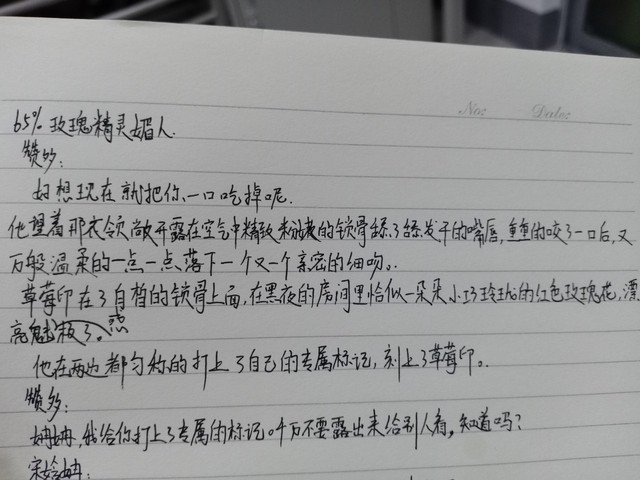 No:
Date:
65% 玫瑰精灵媚人.
赞多:
好想现在就把你一口吃掉呢.
他望着那衣领敞开露在空气中精致的锁骨舔了舔发干的嘴唇,重重的咬了一口后,又
万般温柔的一点一点落下一个又一个亲密的细吻。.
草莓印在了白皙的锁骨上面,在黑夜的房间里恰似一朵朵小巧玲珑的红色玫瑰花,漂
亮魅惑极了。
他在两边都匀称的打上了自己的专属标记,刻上了草莓印。.
赞多:
姌姌,我给你打上了专属的标记。千万不要露出来给别人看,知道吗?
宋姌: